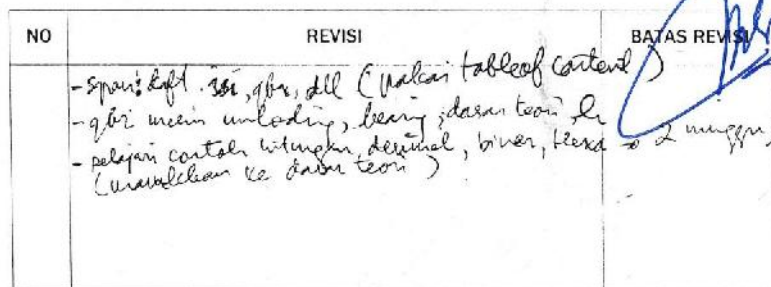 NO REVISI BATAS REVISI
- daft. isi, gbr, dll (pakai table of content)
- gbr mesin unloading, bearing, dasar teori,
- pelajari contoh hitungan, desimal, biner, Hexa → 2 minggu,
(masukkan ke dasar teori)